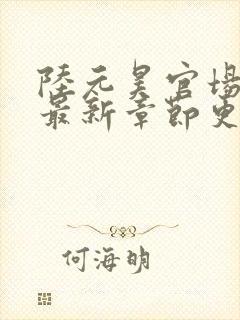 陸元昊官場
最新章節更
何海明